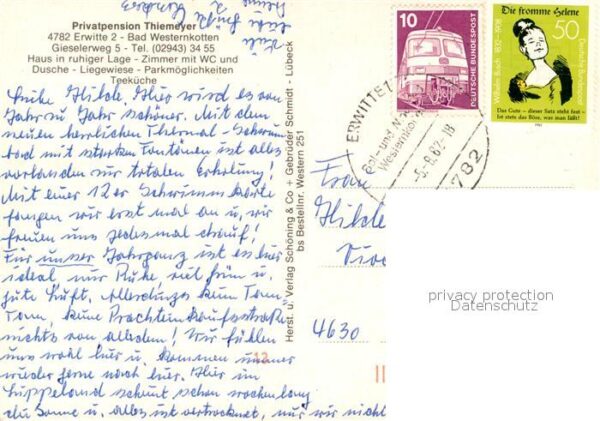 Privatpension Thiemeyer
4782 Erwitte 2 - Bad Westernkotten
Gieselerweg 5 - Tel. (02943) 34 55
Haus in ruhiger Lage - Zimmer mit WC und
Dusche - Liegewiese - Parkmöglichkeiten
Teeküche
Liebe Hilde. Hier wird es von
Jahr zu Jahr schöner. Mit dem
neuen herrlichen Thermal-Schwimm
bad mit starken Fontänen ist alles
vorhanden zur totalen Erholung!
Mit einer 12er Schwimmkarte
fangen wir erst mal an u. wir
freuen uns jedesmal drauf!
Für unser Jahrgang ist es hier
ideal nur Ruhe, viel grün u.
gute Luft. Allerdings kein Tam
Tam, keine Prachteinkaufsstraße
nichts von alledem! Wir fühlen
uns wohl hier u. kommen immer
wieder gerne nach hier. Hier im
Lippeland scheint schon wochenlang
die Sonne u. alles ist vertrocknet, nur wir nicht
Herst. u. Verlag Schöning & Co + Gebrüder Schmidt - Lübeck
bs Bestellnr. Western 251
10
DEUTSCHE BUNDESPOST
Die fromme Helene
50
Wilhelm Busch 1832-1908
Deutsche Bundespost
Das Gute - dieser Satz steht fest -
Ist stets das Böse, was man läßt!
ERWITTE
Westernkotten
-5.-8.82-18
4782
Frau
Hilde
4630
12
privacy protection
Datenschutz